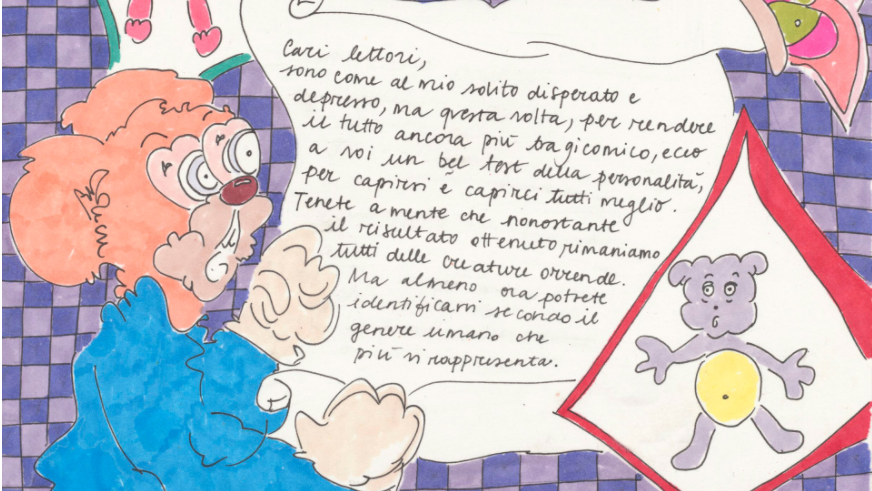 Cari lettori,
sono come al mio solito disperato e
depresso, ma questa volta, per rendere
il tutto ancora più tragicomico, ecco
a voi un bel test della personalità,
per capirsi e capirci tutti meglio.
Tenete a mente che nonostante
il risultato ottenuto rimaniamo
tutti delle creature orrende.
Ma almeno ora potrete
identificarvi secondo il
genere umano che
più vi rappresenta.